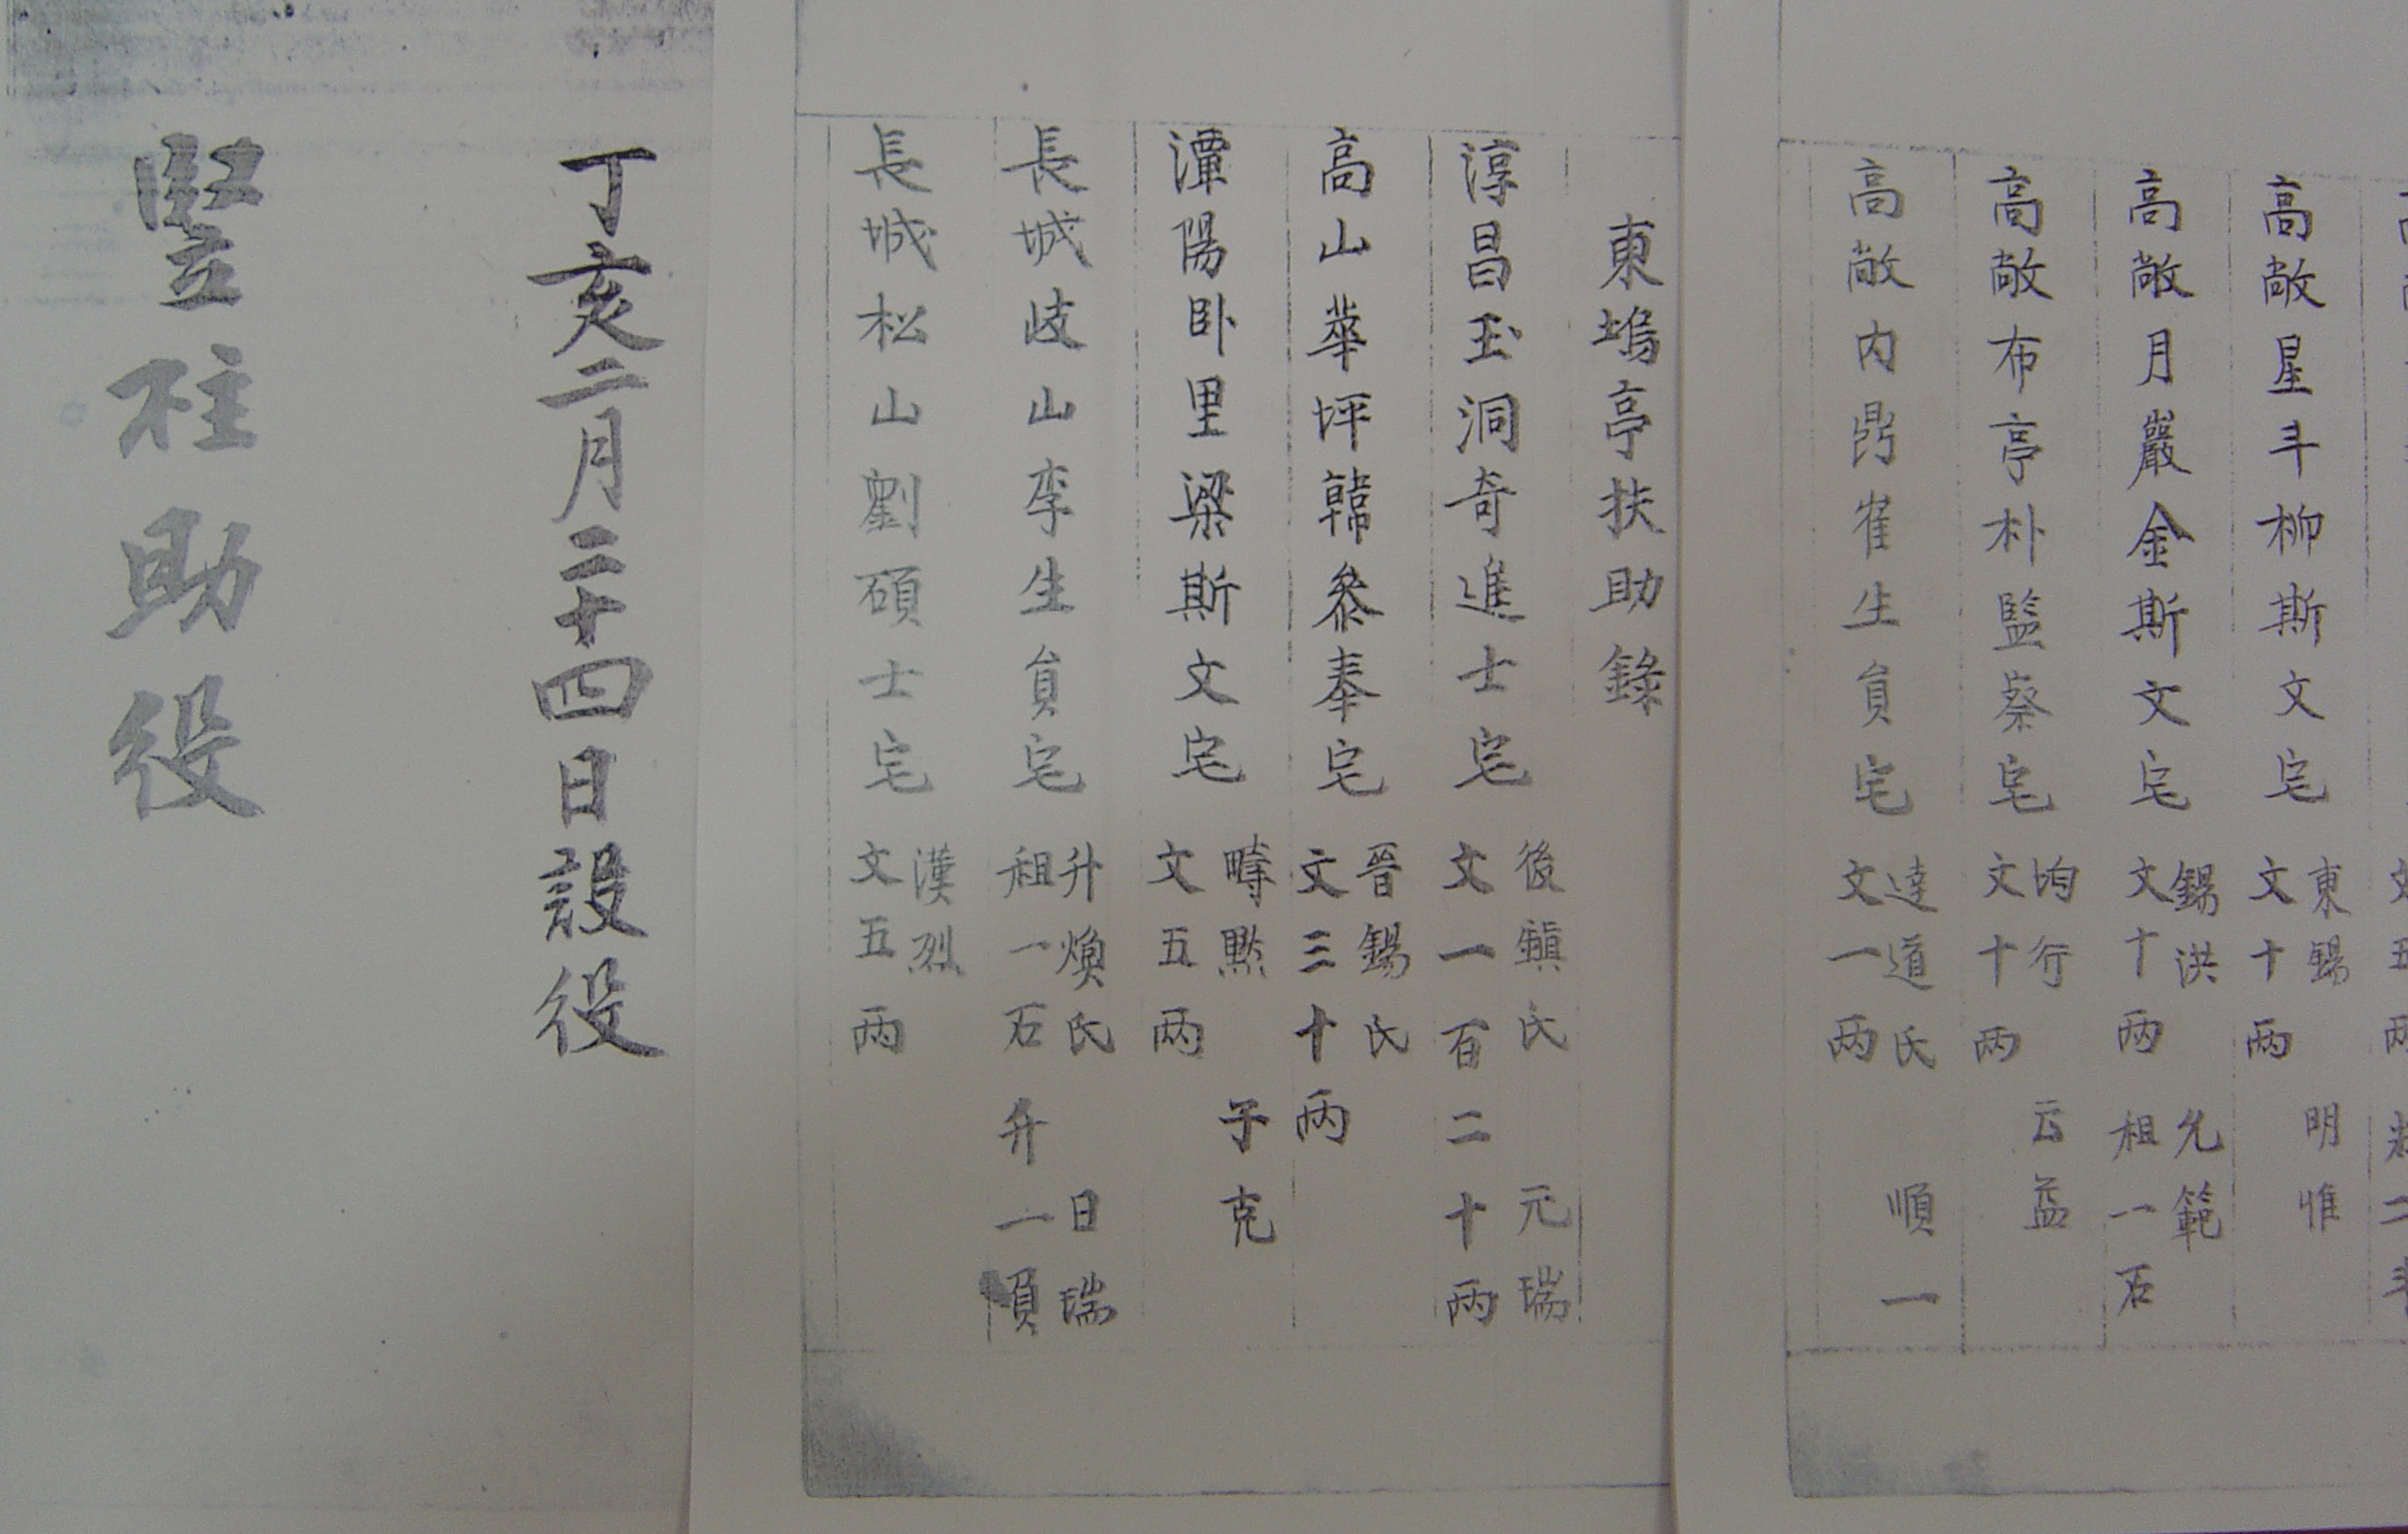 高敞星斗柳斯文宅
東錫 明惟
文十兩
高敞月嚴金斯文宅
錫洪 允範
文十兩 租一石
高敞布亭朴監察宅
均行 云益
文十兩
高敞內崔生員宅
達道氏 順一
文一兩
東塢亭扶助錄
淳昌玉洞奇進士宅
後鎭氏 元瑞
文一百二十兩
高山華坪韓參奉宅
晉錫氏
文三十兩
潭陽卧里梁斯文宅
疇默 于克
文五兩
長城岐山李生員宅
升煥氏 日瑞
租一石 升一負
長城松山劉碩士宅
漢烈
文五兩
丁亥二月二十四日設役
竪柱助役